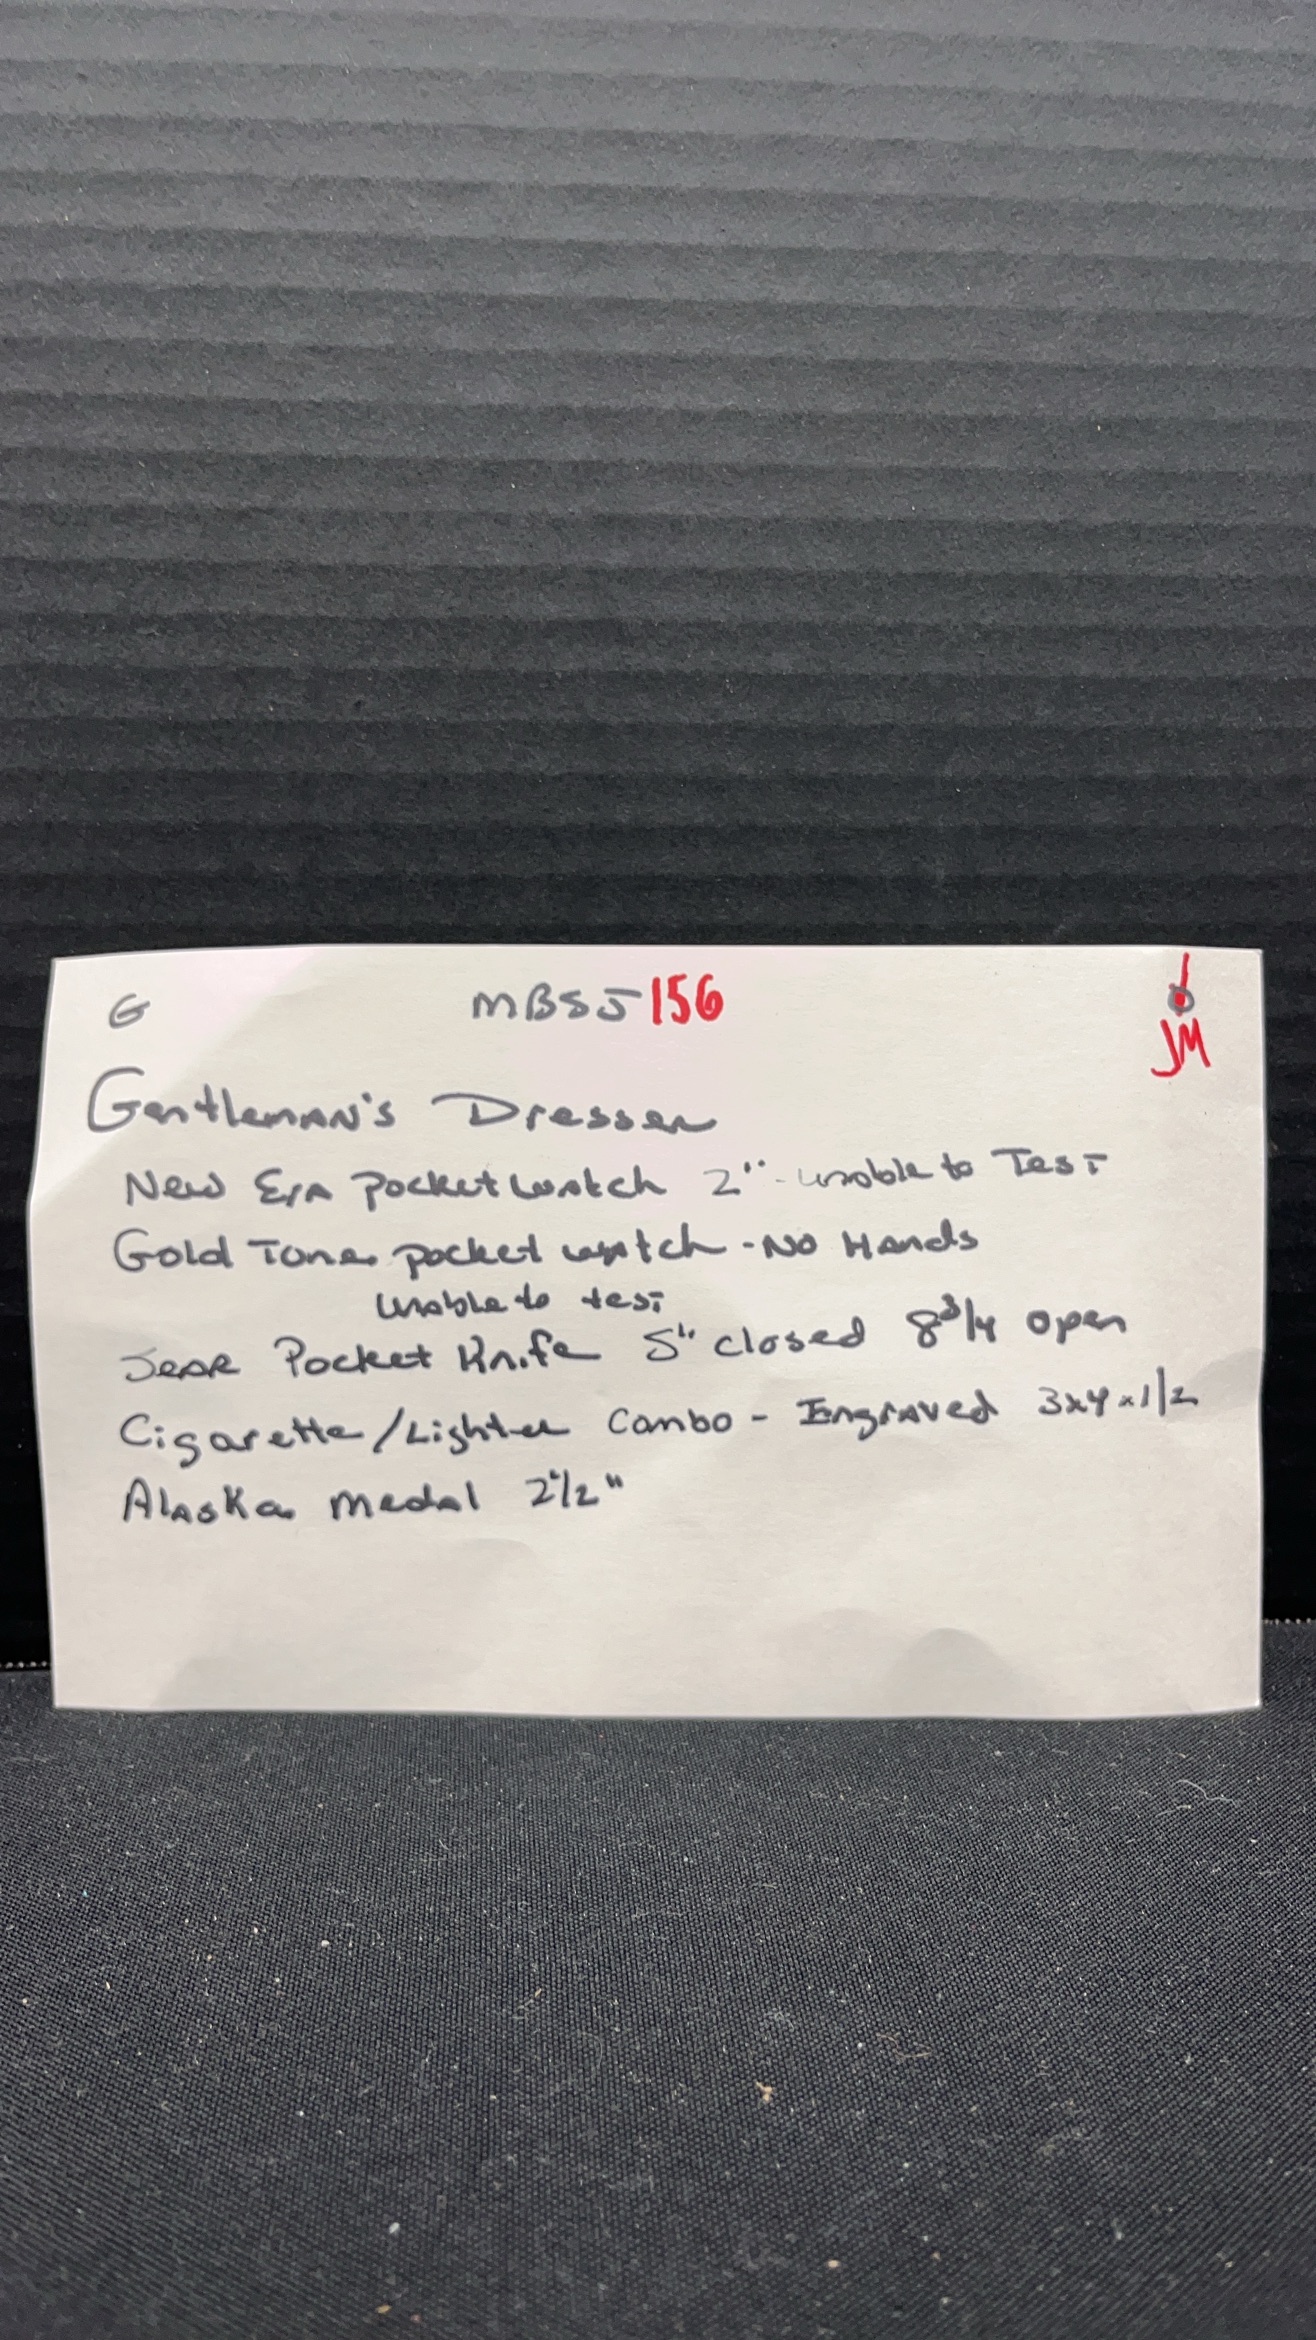 G MBSJ156
JM
Gentleman's Dresser
New Era Pocket Watch 2" - unable to Test
Gold Tone pocket watch - No Hands
unable to test
Pocket Knife 5" closed 8 3/4 open
Cigarette/Lighter Combo - Engraved 3x4x1/2
Alaska medal 2 1/2"